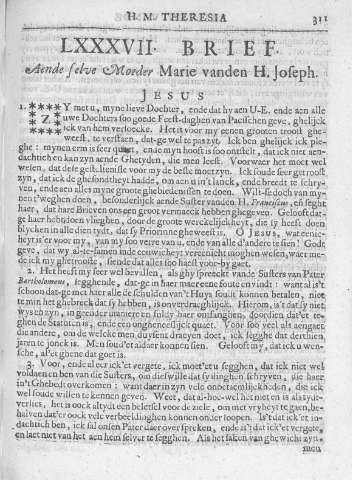 H. M. THERESIA 311
LXXXVII. BRIEF.
Aende selve Moeder Marie vanden H. Joseph.
JESUS
1. ZY met u, myne lieve Dochter, ende dat hy aen U-E. ende aen alle
uwe Dochters soo goede Feest-daghen van Paesschen geve, ghelijck
ick van hem versoecke. Het is voor my eenen grooten troost ghe-
weest, te verstaen, dat-ge wel te pas zyt. Ick ben ghelijck ick pie-
ghe: mynen erm is seer quaet, ende myn hooft is soo ontstelt, dat ick niet aen-
dachtich en kan zyn aende Ghetyden, die men leest. Voorwaer het moet wel
wesen, dat dese gestelteniss voor my de beste moet zyn. Ick soude seer getroost
zyn, dat ick de ghesontheyt hadde, om aen u in't lanck, ende breedt te schry-
ven, ende aen alles myne groote ghebiedenissen te doen. Wilt-se doch van my-
nent'weghen doen, besonderlijck aende Suster vanden H. Franciscus, en seght
haer, dat hare Brieven ons een groot vermaeck hebben ghegeven. Gelooft dat-
ge haer hebt doen vlieghen, door de groote werckelijckheyt, die sy heeft doen
blycken in alle dien tydt, dat sy Priorinne gheweest is. O JESUS, wat eenic-
heyt is'er voor my, van my soo verre van u. ende van alle d'andere te sien! Godt
geve, dat wy al-te-samen inde eeuwicheyt vereenicht moghen wesen, waer me-
de ick my ghetrooste, siende dat alles soo haest voor-by gaet.
2. Het heeft my seer wel bevallen, als ghy spreeckt vande Susters van Pater
Bartholomeus, segghende, dat-ge in haer maer eene foute en vindt: want al is't
schoon dat-ge met haer alle de schulden van 't Huys soudt konnen betalen, niet
te min het ghebreck dat sy hebben, is onverdraghlijck. Hierom, is't dat sy niet
wys en zyn, in geender maniere en sult gy haer ontfanghen, door dien dat 't te-
ghen de Statuten is, ende een ongheneselijck quaet. Voor soo veel als aengaet
die andere, om de welcke men duysent draeyen doet, ick segghe dat derthien
jaren te jonck is. Men soud'et aldaer konnen sien. Gelooft my, dat ick u wen-
sche, al'et ghene dat goet is.
3. Voor, ende al-eer ick't vergete, ick moet'et u segghen, dat ick niet wel
voldaen en ben van die Susters, om dieswille dat sy dinghen schryven, die haer
in't Ghebedt overkomen: want daer in zyn vele onbetaemlijckheden, die ick
wel soude willen te kennen geven. Weet dat al-hoe-wel het niet en is als tydt-
verlies, het is oock altydt een beletsel voor de ziele, om met vryheyt te gaen, be-
halven dat'er oock vele verbeeldinghen konnen onder loopen. Is't dat ick in-
dachtich ben, ick sal onsen Pater daer over spreken, ende is't dat ick 't vergete,
en laet niet van het aen hem selver te segghen. Als het saken van ghewicht zyn,